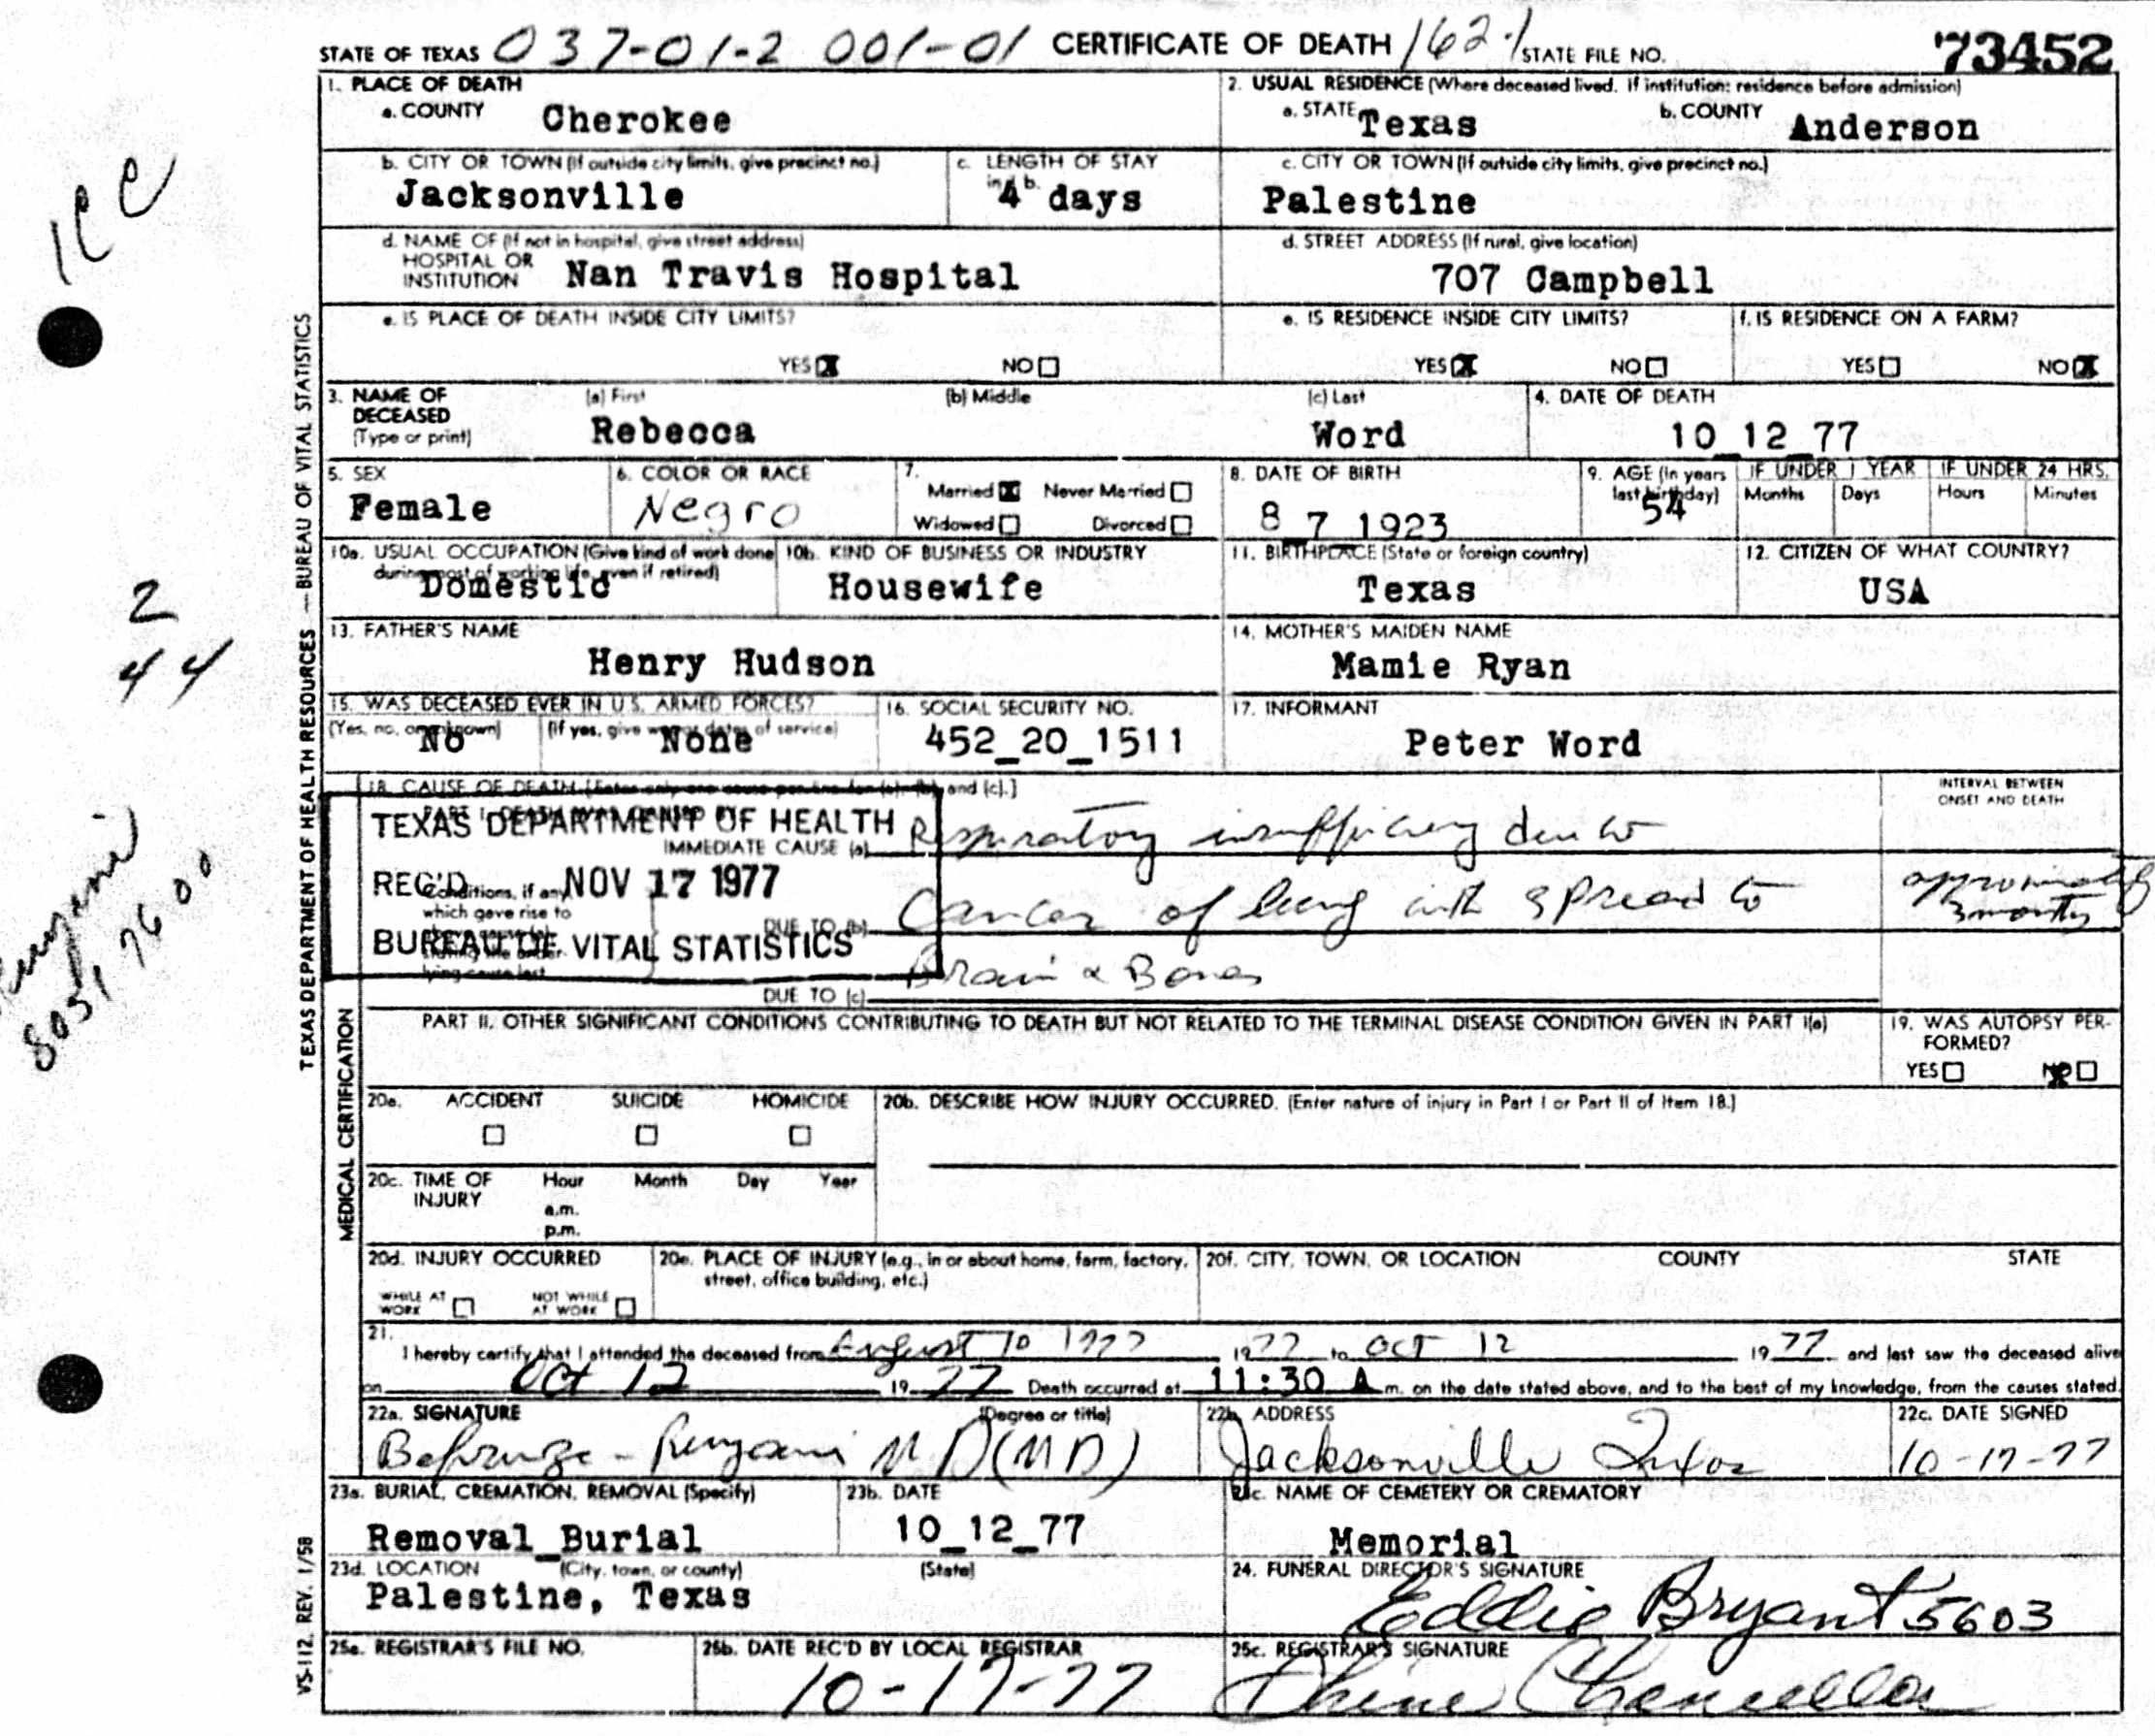 STATE OF TEXAS 037-01-2 001-01 CERTIFICATE OF DEATH 162-1 STATE FILE NO. 73452
1. PLACE OF DEATH
a. COUNTY Cherokee
2. USUAL RESIDENCE (Where deceased lived. If institution: residence before admission)
a. STATE Texas b. COUNTY Anderson
b. CITY OR TOWN (If outside city limits, give precinct no.) Jacksonville
c. LENGTH OF STAY in 1b. 4 days
c. CITY OR TOWN (If outside city limits, give precinct no.) Palestine
d. NAME OF (If not in hospital, give street address)
HOSPITAL OR
INSTITUTION Nan Travis Hospital
d. STREET ADDRESS (If rural, give location)
707 Campbell
e. IS PLACE OF DEATH INSIDE CITY LIMITS?
YES X NO
e. IS RESIDENCE INSIDE CITY LIMITS?
YES X NO
f. IS RESIDENCE ON A FARM?
YES NO X
3. NAME OF DECEASED (Type or print)
(a) First Rebecca (b) Middle (c) Last Word
4. DATE OF DEATH
10_12_77
5. SEX Female
6. COLOR OR RACE Negro
7. Married X Never Married
Widowed Divorced
8. DATE OF BIRTH 8 7 1923
9. AGE (In years last birthday) 54
IF UNDER 1 YEAR Months Days
IF UNDER 24 HRS. Hours Minutes
10a. USUAL OCCUPATION (Give kind of work done during most of working life, even if retired) Domestic
10b. KIND OF BUSINESS OR INDUSTRY Housewife
11. BIRTHPLACE (State or foreign country) Texas
12. CITIZEN OF WHAT COUNTRY? USA
13. FATHER'S NAME Henry Hudson
14. MOTHER'S MAIDEN NAME Mamie Ryan
15. WAS DECEASED EVER IN U.S. ARMED FORCES?
(Yes, no, or unknown) No (If yes, give war or dates of service) None
16. SOCIAL SECURITY NO. 452_20_1511
17. INFORMANT Peter Word
18. CAUSE OF DEATH [Enter only one cause per line for (a), (b), and (c).]
PART I. DEATH WAS CAUSED BY:
IMMEDIATE CAUSE (a) Respiratory insufficiency due to
Conditions, if any, which gave rise to
lying cause last
DUE TO (b) Cancer of lung with spread to
Brain & Bones
DUE TO (c)
INTERVAL BETWEEN ONSET AND DEATH
approximately
3 months
TEXAS DEPARTMENT OF HEALTH
REC'D NOV 17 1977
BUREAU OF VITAL STATISTICS
PART II. OTHER SIGNIFICANT CONDITIONS CONTRIBUTING TO DEATH BUT NOT RELATED TO THE TERMINAL DISEASE CONDITION GIVEN IN PART I(a)
19. WAS AUTOPSY PERFORMED?
YES NO
20a. ACCIDENT SUICIDE HOMICIDE
20b. DESCRIBE HOW INJURY OCCURRED. (Enter nature of injury in Part I or Part II of Item 18.)
20c. TIME OF INJURY Hour Month Day Year
a.m.
p.m.
20d. INJURY OCCURRED
WHILE AT WORK NOT WHILE AT WORK
20e. PLACE OF INJURY (e.g., in or about home, farm, factory, street, office building, etc.)
20f. CITY, TOWN, OR LOCATION COUNTY STATE
21.
I hereby certify that I attended the deceased from August 10 1977 1977 to Oct 12 1977 and last saw the deceased alive
on Oct 12 1977 Death occurred at 11:30 A m. on the date stated above, and to the best of my knowledge, from the causes stated.
22a. SIGNATURE (Degree or title)
MD (MD)
22b. ADDRESS
Jacksonville Texas
22c. DATE SIGNED
10-17-77
23a. BURIAL, CREMATION, REMOVAL (Specify)
Removal_Burial
23b. DATE
10_12_77
23c. NAME OF CEMETERY OR CREMATORY
Memorial
23d. LOCATION (City, town, or county) (State)
Palestine, Texas
24. FUNERAL DIRECTOR'S SIGNATURE
Eddie Bryant 5603
25a. REGISTRAR'S FILE NO.
25b. DATE REC'D BY LOCAL REGISTRAR
10-17-77
25c. REGISTRAR'S SIGNATURE
Chancellor
TEXAS DEPARTMENT OF HEALTH RESOURCES — BUREAU OF VITAL STATISTICS
MEDICAL CERTIFICATION
VS-112, REV. 1/58
2
44